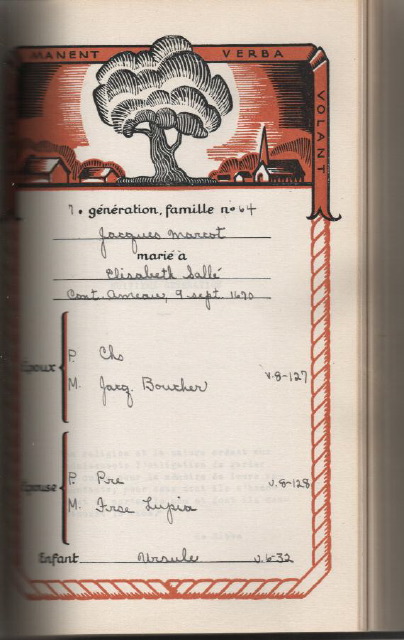 MANENT VERBA VOLANT
7e génération, famille no 64
Jacques Marcot
marié à
Elisabeth Sallé
Cont. Ameau, 9 sept. 1670
Époux
P. Chs
M. Jacq. Boucher v.8-127
Épouse
P. Pre
M. Frse Lupia v.8-128
Enfant Ursule v.6-32